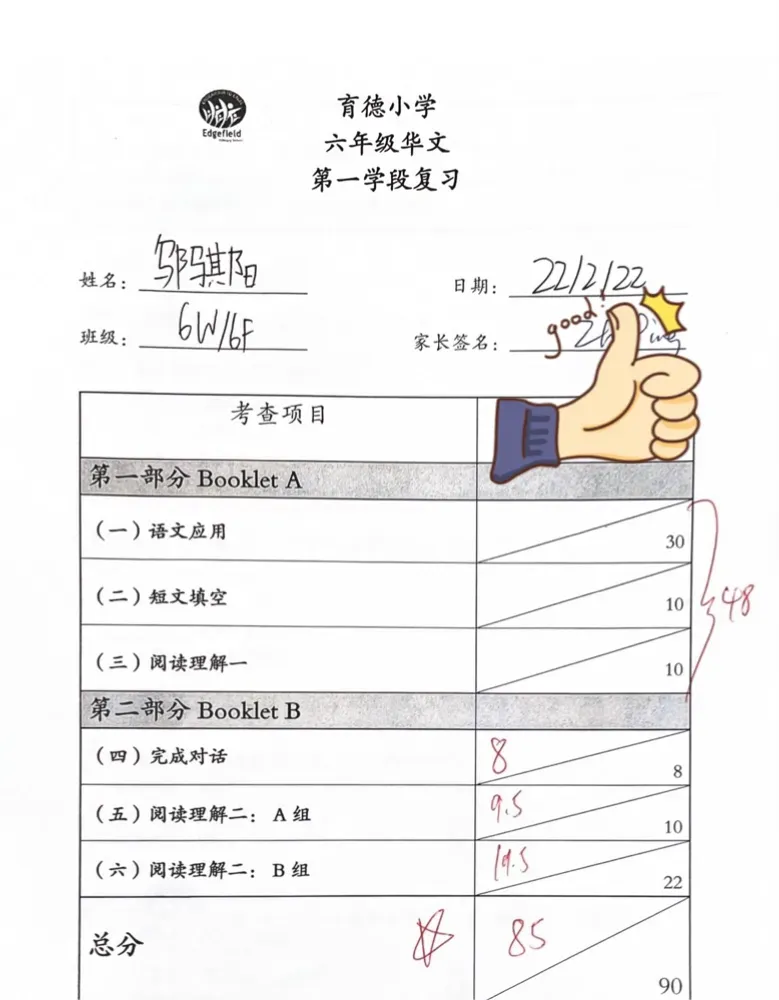 Edgefield
育德小学
六年级华文
第一学段复习
姓名： 邬骐阳
日期： 22/2/22
班级： 6W/6F
家长签名：
good!
考查项目
第一部分 Booklet A
（一）语文应用 30
（二）短文填空 10
（三）阅读理解一 10
48
第二部分 Booklet B
（四）完成对话 8 8
（五）阅读理解二： A 组 9.5 10
（六）阅读理解二： B 组 19.5 22
总分 85 90